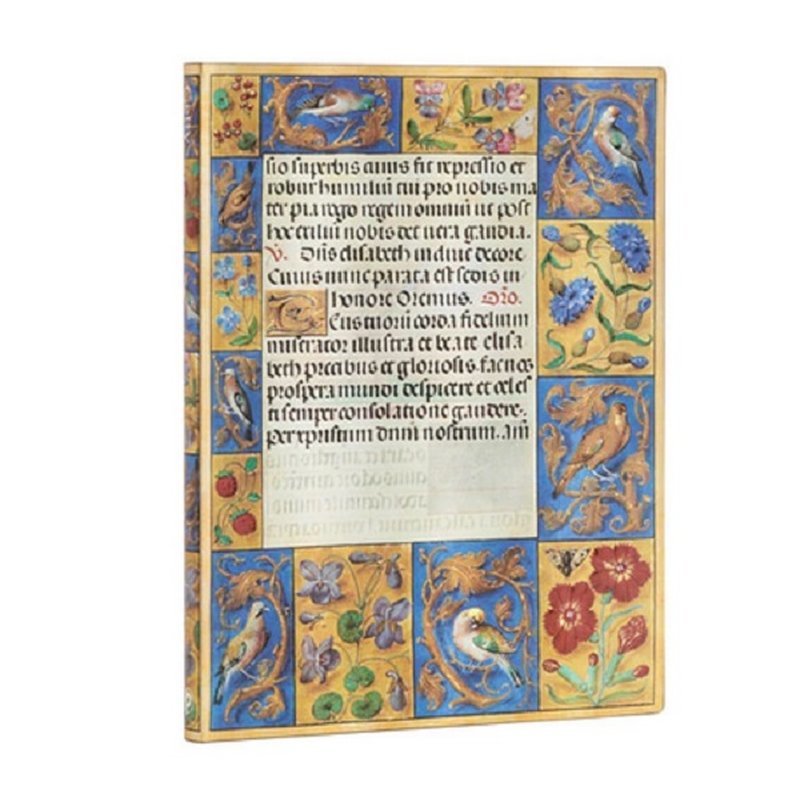 sio superbis cuius fit repressio et
robur humiliū cui pro nobis ma
ter pia rogo regem omniū ut post
hoc exiliū nobis det uera gaudia.
V. Diſs elisabeth in diuit decore
Cuius nunc parata est sedis in
honore Oremus. Oro.
Eus tuorū corda fidelium
miserator illustra et beate elisa
beth precibus et gloriosis. fac nos
prospera mundi despicere et celes
ti semper consolatione gaudere.
per xpristum dnm nostrum. am